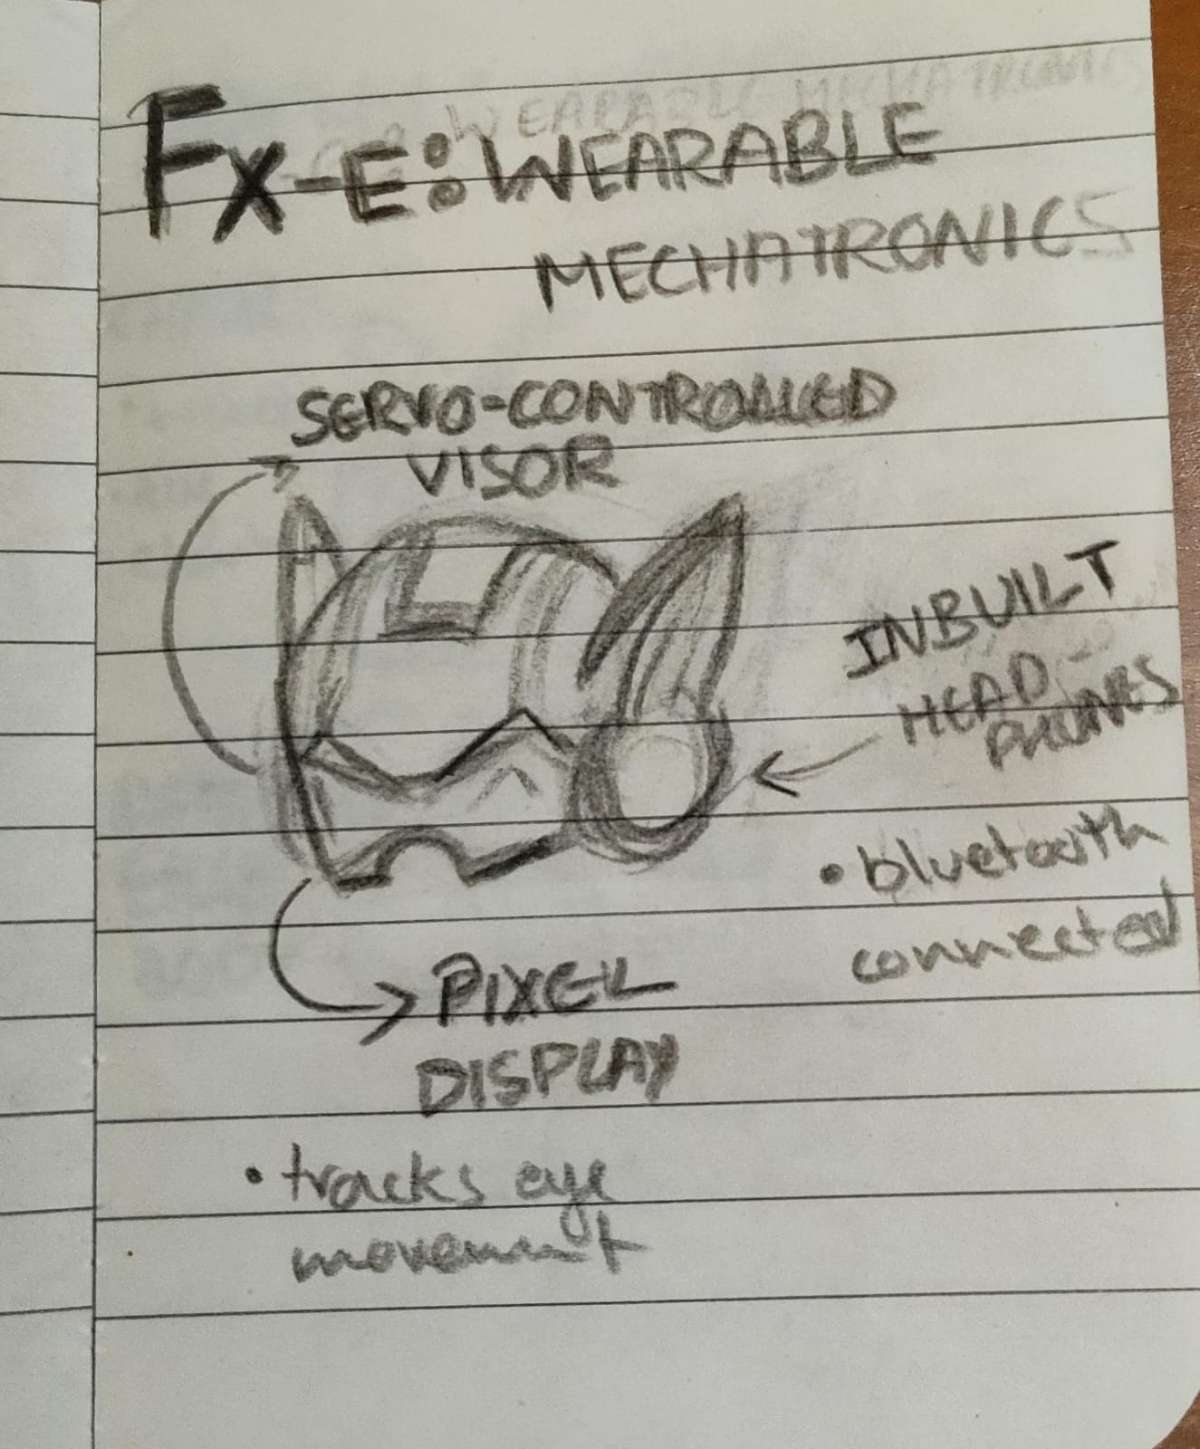 Fx-E: WEARABLE
MECHATRONICS
SERVO-CONTROLLED
VISOR
INBUILT
HEAD-
PHONES
• bluetooth
connected
PIXEL
DISPLAY
• tracks eye
movement